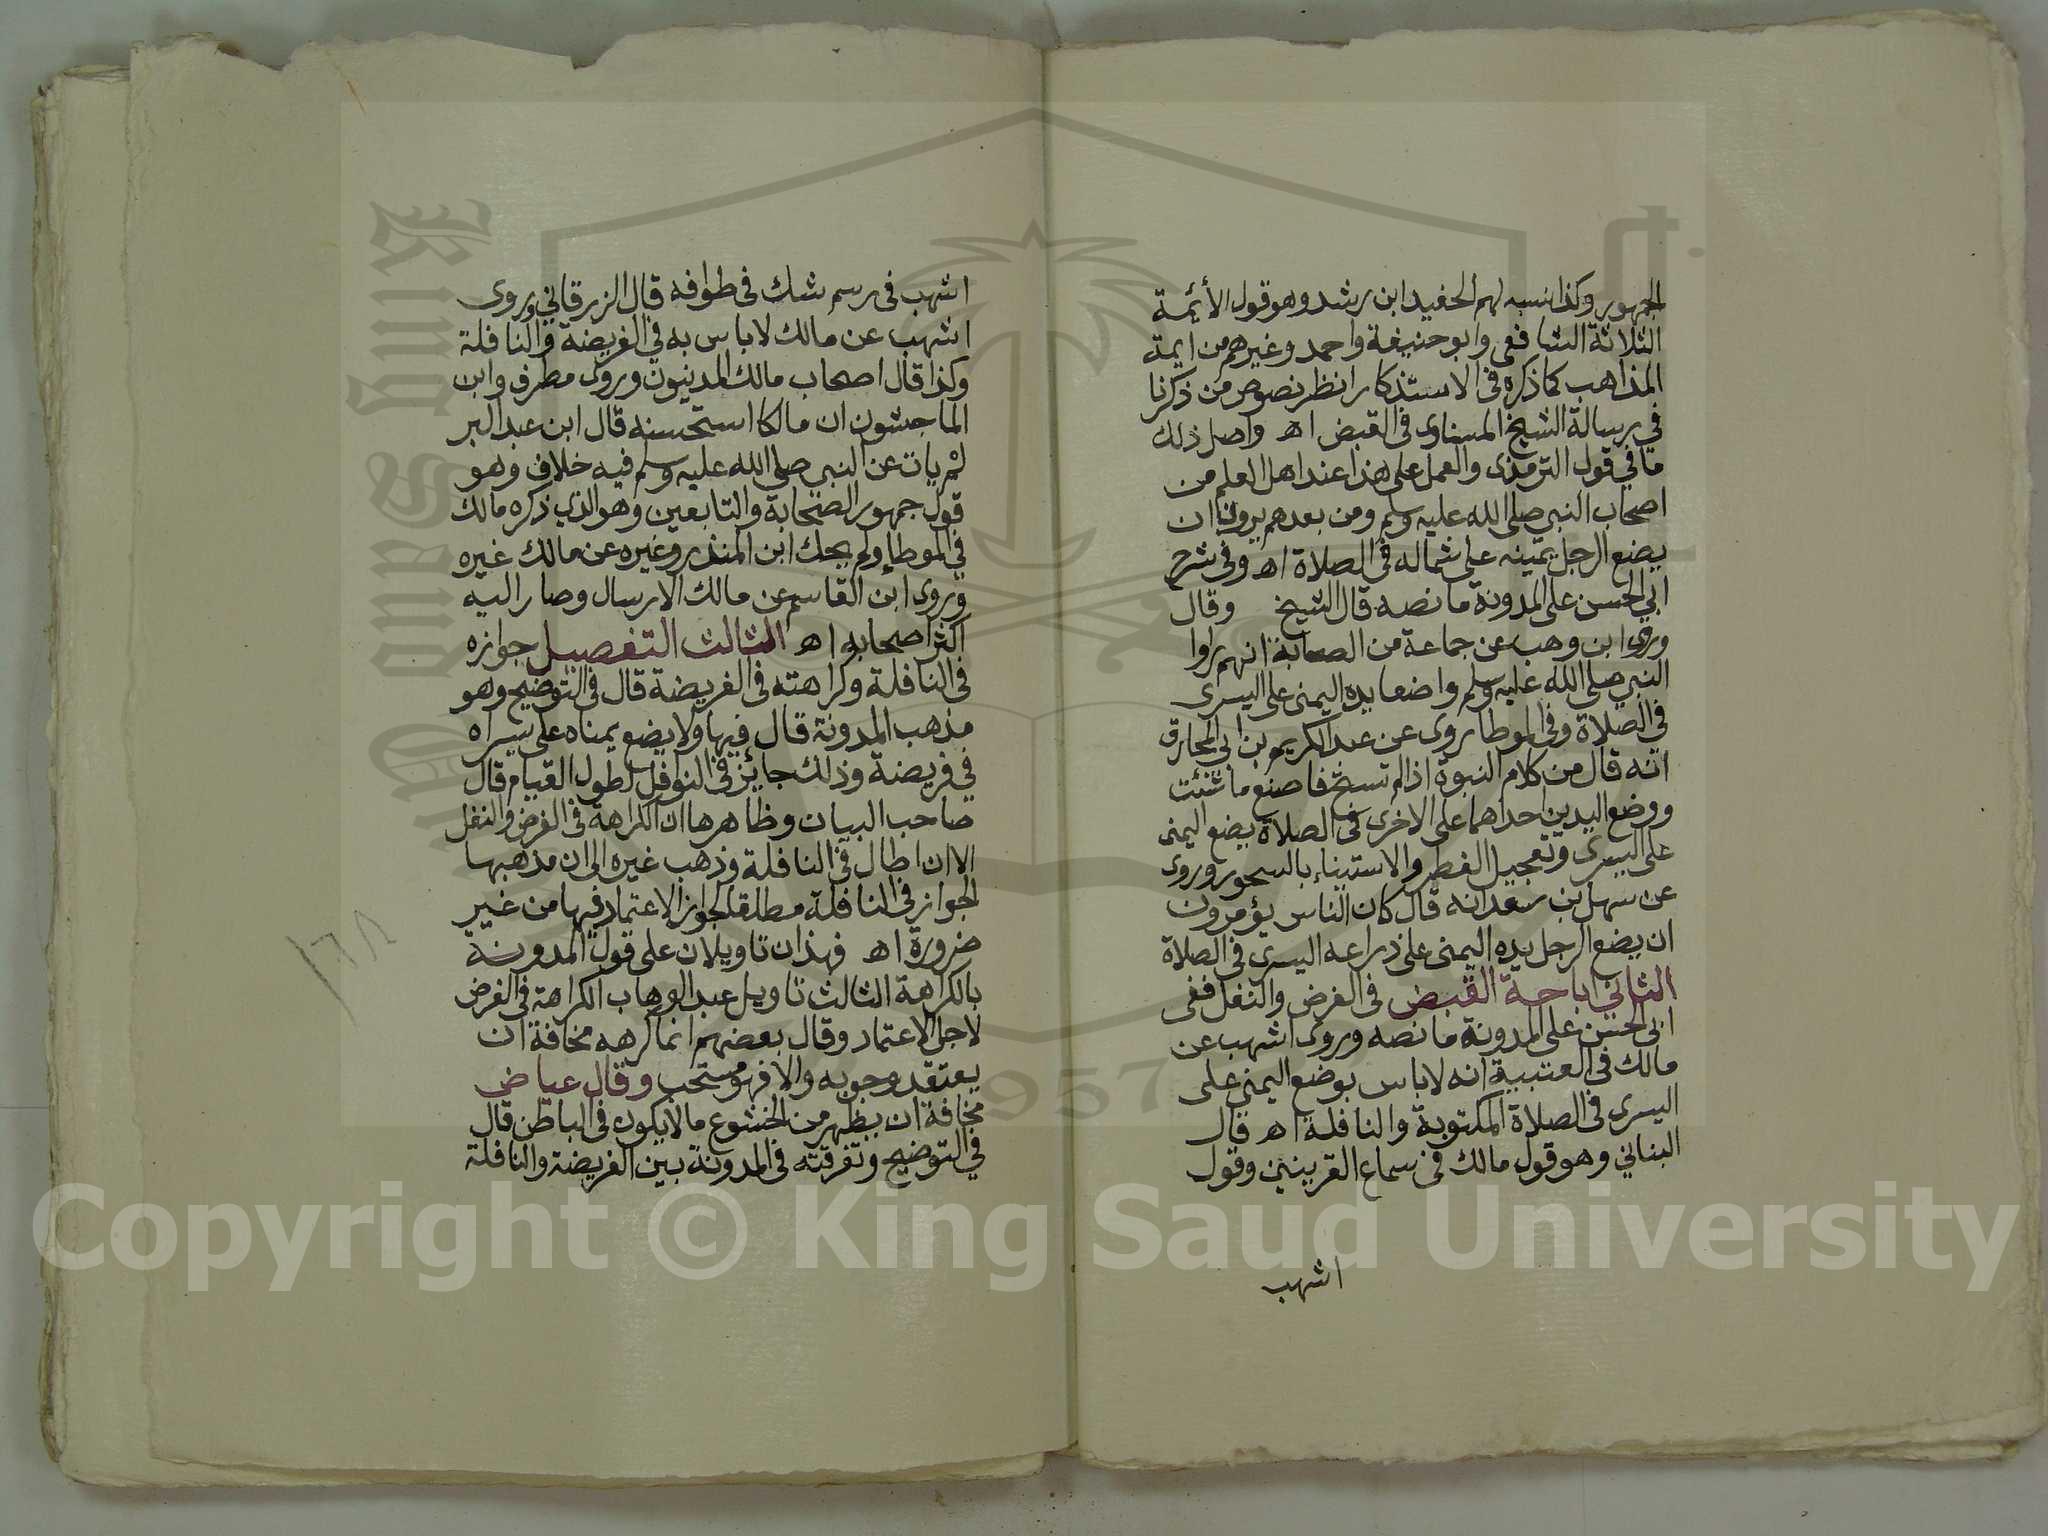 الجمهور وكذا نسبه لهم الحفيد ابن رشد وهو قول الأئمة
الثلاثة الشافعى وابو حنيفة واحمد وغيرهم من ايمة
المذاهب كما ذكره فى الاستذكار انظر نصوص من ذكرنا
في رسالة الشيخ المسناوى فى القبض اه واصل ذلك
ما في قول الترمذى والعمل على هذا عند اهل العلم من
اصحاب النبي صلى الله عليه وسلم ومن بعدهم يرون ان
يضع الرجل يمينه على شماله فى الصلاة اه وفى شرح
ابي الحسن على المدونة ما نصه قال الشيخ وقال
وروى ابن وهب عن جماعة من الصحابة انهم راوا
النبي صلى الله عليه وسلم واضعا يده اليمنى على اليسرى
فى الصلاة وفى الموطا روى عن عبد الكريم بن ابى المخارق
انه قال من كلام النبوة اذا لم تستح فاصنع ما شئت
ووضع اليدين احداهما على الاخرى فى الصلاة يضع اليمنى
على اليسرى وتعجيل الفطر والاستيناء بالسحور وروى
عن سهل بن سعد انه قال كان الناس يؤمرون
ان يضع الرجل يده اليمنى على ذراعه اليسرى فى الصلاة
الثانى اباحة القبض فى الفرض والنفل ففى
ابى الحسن على المدونة ما نصه وروى اشهب عن
مالك فى العتبية انه لا باس بوضع اليمنى على
اليسرى فى الصلاة المكتوبة والنافلة اه قال
البناني وهو قول مالك فى سماع القرينين وقول
اشهب
اشهب فى رسم شك فى طوافه قال الزرقاني وروى
اشهب عن مالك لا باس به فى الفريضة والنافلة
وكذا قال اصحاب مالك المدنيون وروى مطرف وابن
الماجشون ان مالكا استحسنه قال ابن عبد البر
لم يات عن النبي صلى الله عليه وسلم فيه خلاف وهو
قول جمهور الصحابة والتابعين وهو الذي ذكره مالك
في الموطا ولم يحك ابن المنذر وغيره عن مالك غيره
وروى ابن القاسم عن مالك الارسال وصار اليه
اكثر اصحابه اه الثالث التفصيل جوازه
فى النافلة وكراهته فى الفريضة قال فى التوضيح وهو
مذهب المدونة قال فيها ولا يضع يمناه على يسراه
في فريضة وذلك جائز فى النوافل لطول القيام قال
صاحب البيان وظاهرها ان الكراهة فى الفرض والنفل
الا ان اطال فى النافلة وذهب غيره الى ان مذهبها
الجواز فى النافلة مطلقا لجواز الاعتماد فيها من غير
ضرورة اه فهذان تاويلان على قول المدونة
بالكراهة الثالث تاويل عبد الوهاب الكراهة فى الفرض
لاجل الاعتماد وقال بعضهم انما كرهه مخافة ان
يعتقد وجوبه والا فهو مستحب وقال عياض
مخافة ان يظهر من الخشوع ما لا يكون فى الباطن قال
في التوضيح وتفرقته فى المدونة بين الفريضة والنافلة
King Saud University
1957
Copyright © King Saud University